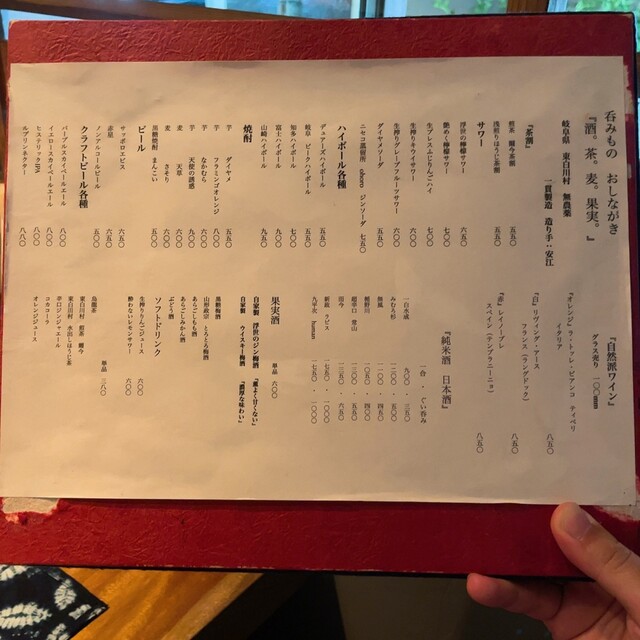 呑みもの おしながき
『酒。茶。麦。果実。』
岐阜県 東白川村 無農薬
一貫製造 造り手：安江
『茶割』
煎茶 瞬今茶割 五五〇
浅煎りほうじ茶割 五五〇
サワー
浮世の檸檬サワー 六五〇
艶めく檸檬サワー 七〇〇
生プレスふじりんごハイ 七〇〇
生搾りキウイサワー 六〇〇
生搾りグレープフルーツサワー 六〇〇
ダイヤメソーダ 五五〇
ニセコ蒸留所 ohoro ジンソーダ 七五〇
ハイボール各種
デュアーズハイボール 五五〇
岐阜 ピークハイボール
知多ハイボール 七五〇
富士ハイボール 九〇〇
山崎ハイボール 九五〇
焼酎
芋 ダイヤメ 五五〇
芋 フラミンゴオレンジ 八〇〇
芋 なかむら 六〇〇
芋 天使の誘惑 九〇〇
麦 天草
麦 さそり 五〇〇
黒糖焼酎 まんこい 五五〇
ビール
サッポロエビス 六五〇
赤星 六五〇
ノンアルコールビール 五〇〇
クラフトビール各種
パープルスカイペールエール 八〇〇
イエロースカイペールエール 八〇〇
ヒステリックIPA 八〇〇
ルプリンネクター 八八〇
『自然派ワイン』
グラス売り 一〇〇mm
『オレンジ』ラ・トッレ・ビアンコ ティベリ
イタリア 八五〇
『白』リヴィング・アース
フランス（ラングドック） 八五〇
『赤』レイノーブレ
スペイン（テンプラニーニョ） 八五〇
『純米酒 日本酒』
一合 ・ ぐい呑み
一白水成 九〇〇 ・ 三五〇
みむろ杉 一二〇〇 ・ 五〇〇
無風 一〇〇〇 ・ 四五〇
超辛口 常山
九平次 human 一七五〇 ・ 一〇〇〇
果実酒 単品 六〇〇
自家製 浮世のジン梅酒 『薫よく甘くない』
自家製 ウイスキー梅酒 『濃厚な味わい』
黒糖梅酒
山形政宗 とろとろ梅酒
あらごしもも酒
あらごしみかん酒
ぶどう酒
ソフトドリンク
生搾りりんごジュース 六〇〇
酔わないレモンサワー 六〇〇
単品 三八〇
烏龍茶
東白川村 煎茶 瞬今
東白川村 水出しほうじ茶
辛口ジンジャエール
コカコーラ
オレンジジュース